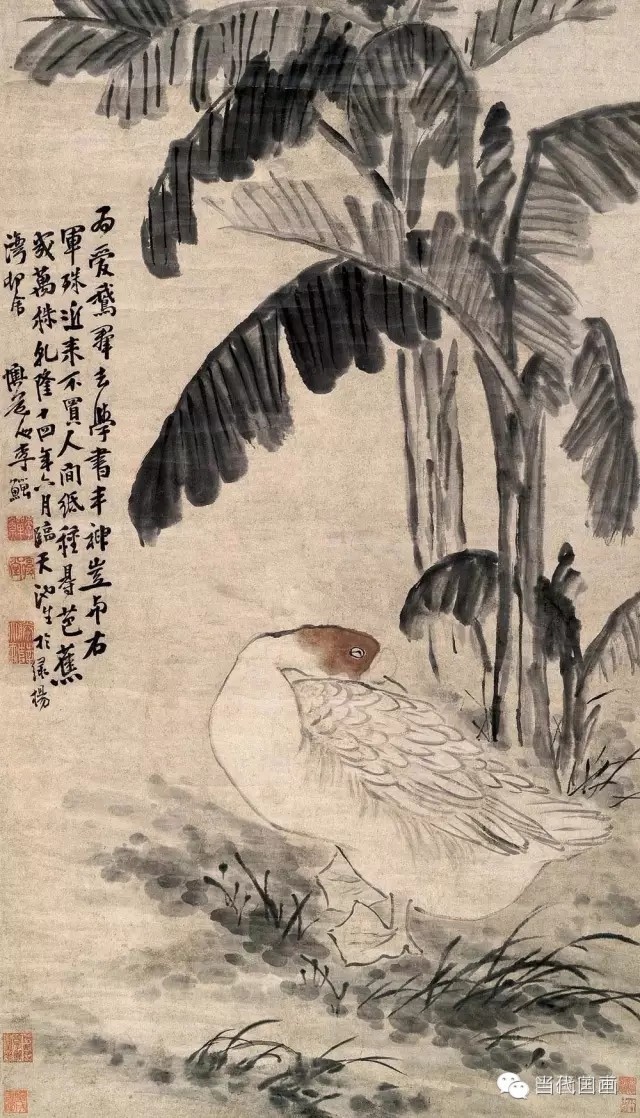 為愛鵞羣去學書丰神豈与右
軍殊近来不買人間紙種得芭蕉
幾萬株乾隆十四年六月臨天池生於綠楊
灣邨舍 懊道人李鱓
当代国画